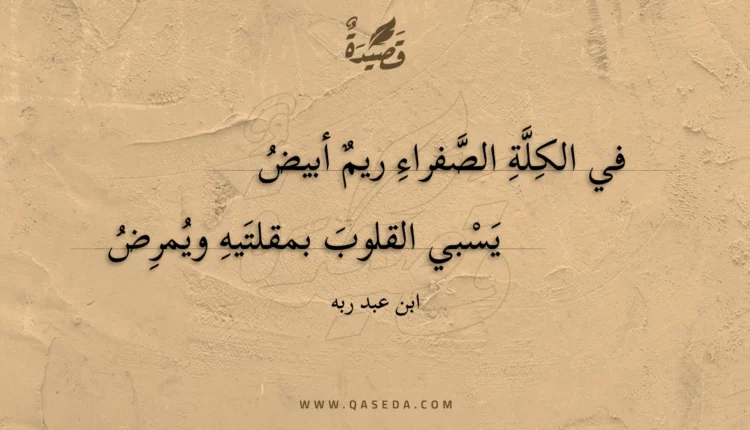 قَصِيدَةٌ
في الكِلَّةِ الصَّفراءِ ريمٌ أبيضُ
يَسْبي القلوبَ بمقلتَيهِ ويُمرِضُ
ابن عبد ربه
WWW.QASEDA.COM